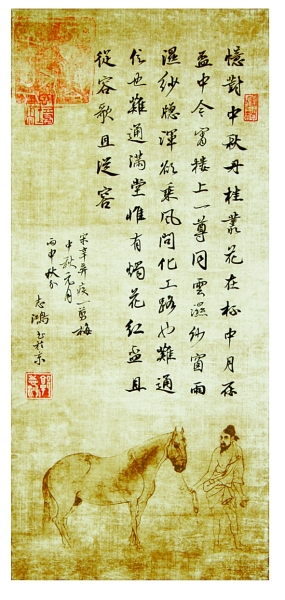 憶對中秋丹桂叢花在杯中月在
盃中今宵樓上一尊同雲濕紗窗雨
濕紗窓渾欲乘風問化工路也難通
信也難通滿堂惟有燭花紅盃且
從容歌且從容
宋辛弃疾一剪梅
中秋元月
丙申秋分
志鴻书於京